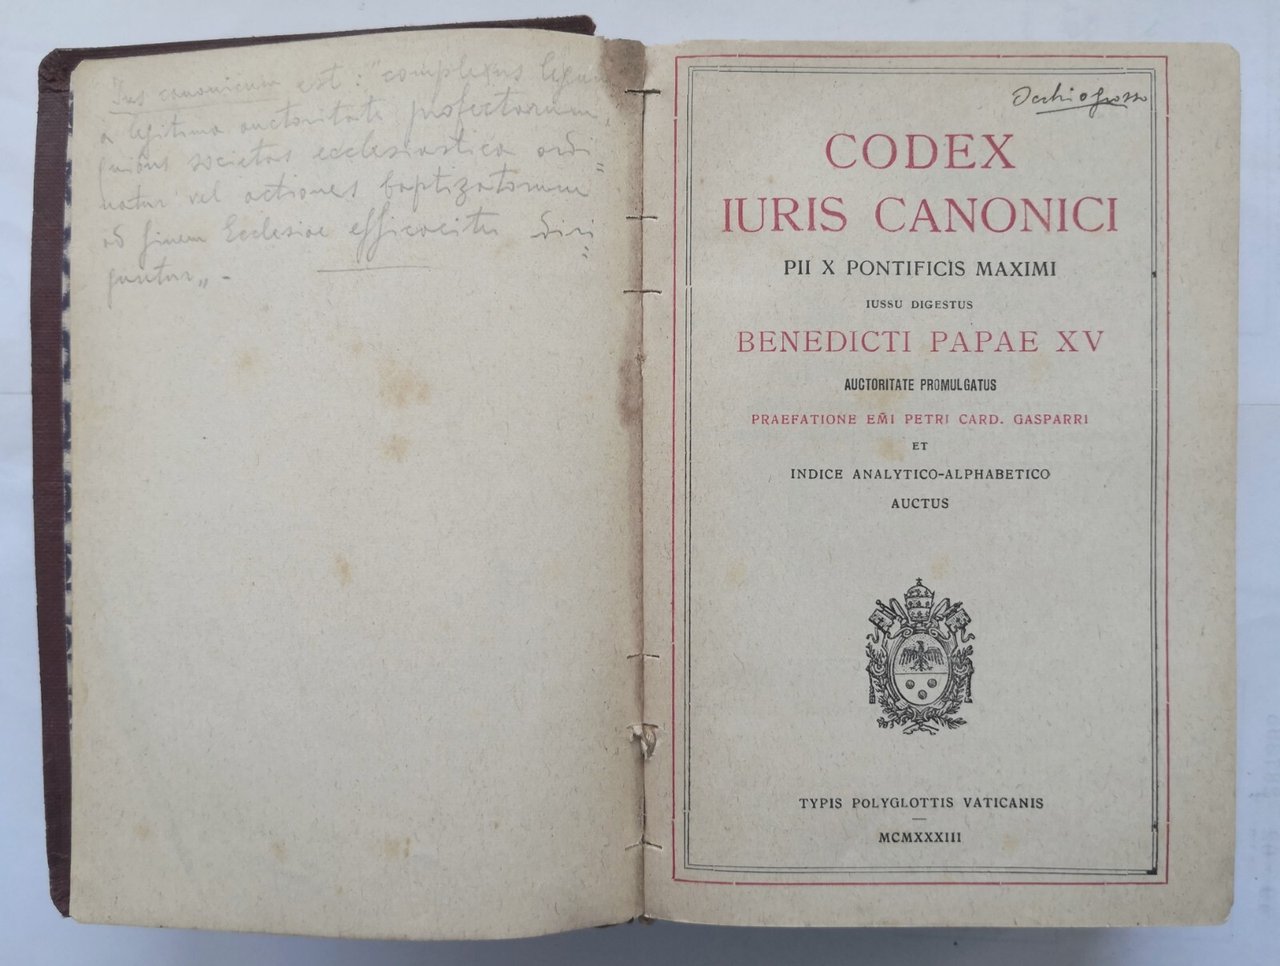 Ius canonicum est: "complexus legum
a legitima auctoritate profectorum,
quibus societas ecclesiastica ordi=
natur vel actiones baptizatorum
ad finem Ecclesiae efficaciter diri=
guntur„ -
Occhiogrosso
CODEX
IURIS CANONICI
PII X PONTIFICIS MAXIMI
IUSSU DIGESTUS
BENEDICTI PAPAE XV
AUCTORITATE PROMULGATUS
PRAEFATIONE EM̃I PETRI CARD. GASPARRI
ET
INDICE ANALYTICO-ALPHABETICO
AUCTUS
TYPIS POLYGLOTTIS VATICANIS
MCMXXXIII